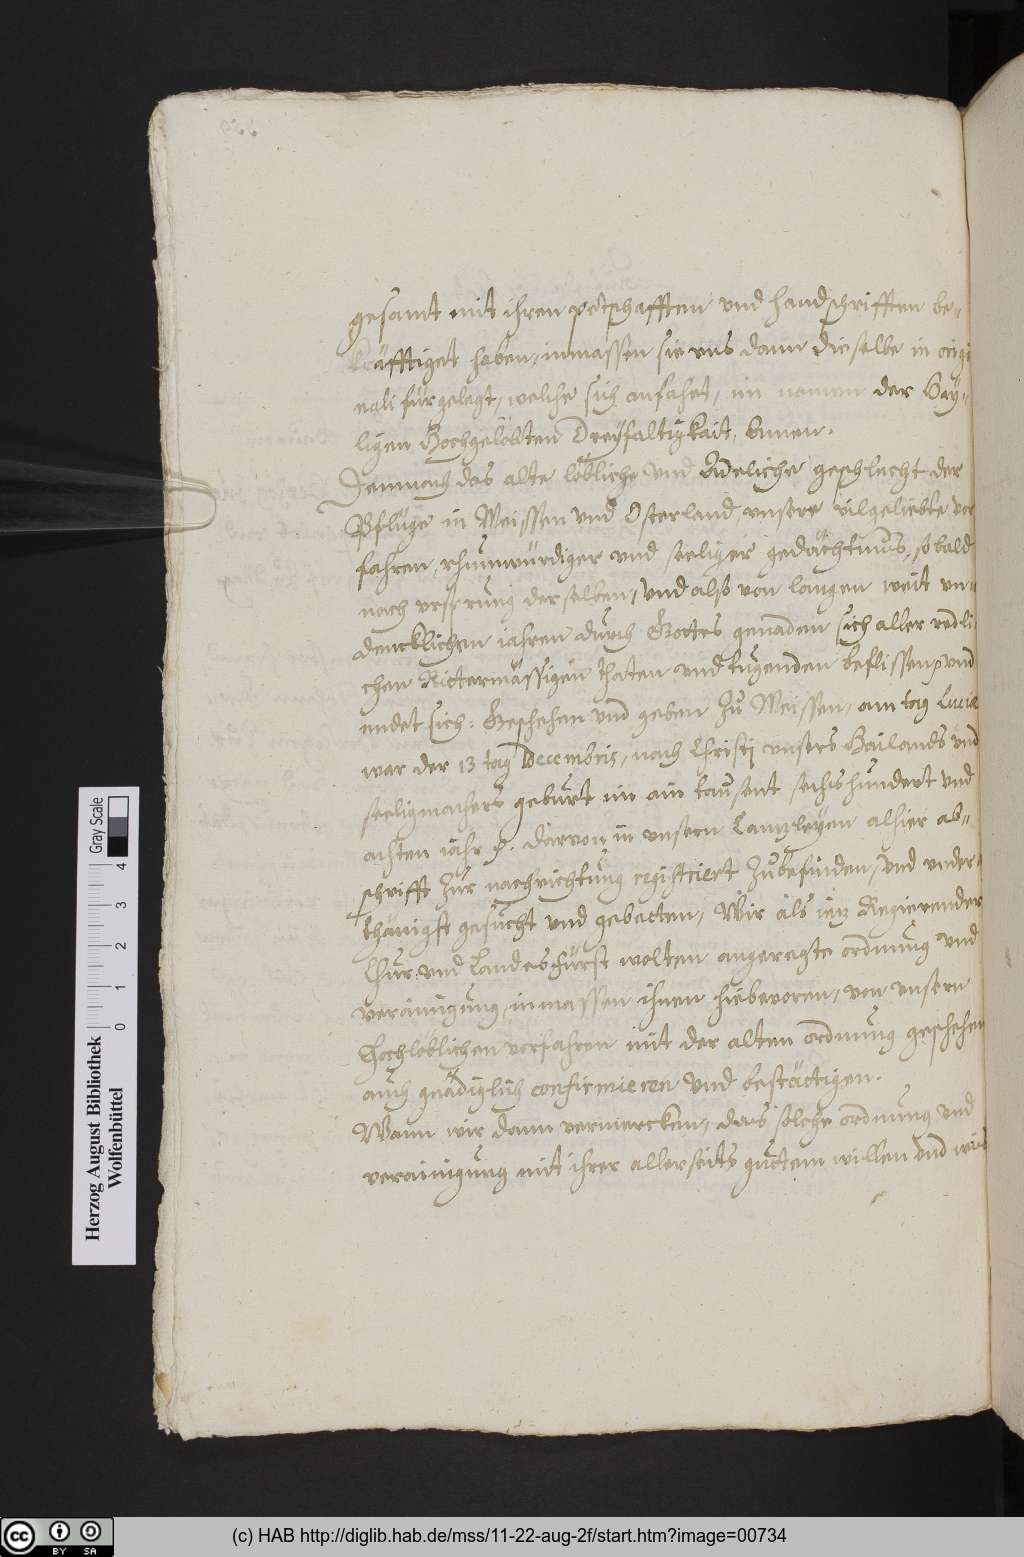 gesamt mit ihren petschafften vnd handschrifften be-
kräfftiget haben, inmassen sie vns dann dieselbe in origi
nali fürgelegt, welche sich anfahet, im namen der Hay-
ligen Hochgelobten Dreyfaltigkait, Amen.
Demnach das alte löbliche vnd Adeliche geschlecht der
Pflüge in Meissen vnd Osterland, vnsere vilgeliebte vor
fahren, rhumwürdiger vnd seeliger gedächtnus, so bald
nach vrsprung derselben, vnd also von langen weit vn-
dencklichen iahren durch Gottes genaden sich aller redli
chen Rittermässigen thaten vnd tugenden beflissen, vnd
endet sich: Geschehen vnd geben zu Meissen, am tag Luciæ
war der 13 tag Decembris, nach Christj vnsers Hailands vnd
seeligmachers geburt im ain tausent sechshundert vnd
achten iahr. darvon in vnsern Cantzleyen alhier ab-
schrifft zur nachrichtung registriert zubefinden, vnd vnder-
thänigst gesucht vnd gebetten, Wir als ietz Regierender
Chur vnd Landesfürst wolten angeregte ordnung vnd
verainigung, inmassen ihnen hiebevoren, von vnsern
Hochlöblichen vorfahren mit der alten ordnung geschehen
auch gnädiglich confirmieren vnd bestättigen.
Wann wir dann vermercken, das solche ordnung vnd
verainigung mit ihrer allerseits guttem willen vnd wis
Herzog August Bibliothek
Wolfenbüttel
0 1 2 3 4
Gray Scale
(c) HAB http://diglib.hab.de/mss/11-22-aug-2f/start.htm?image=00734
cc BY SA